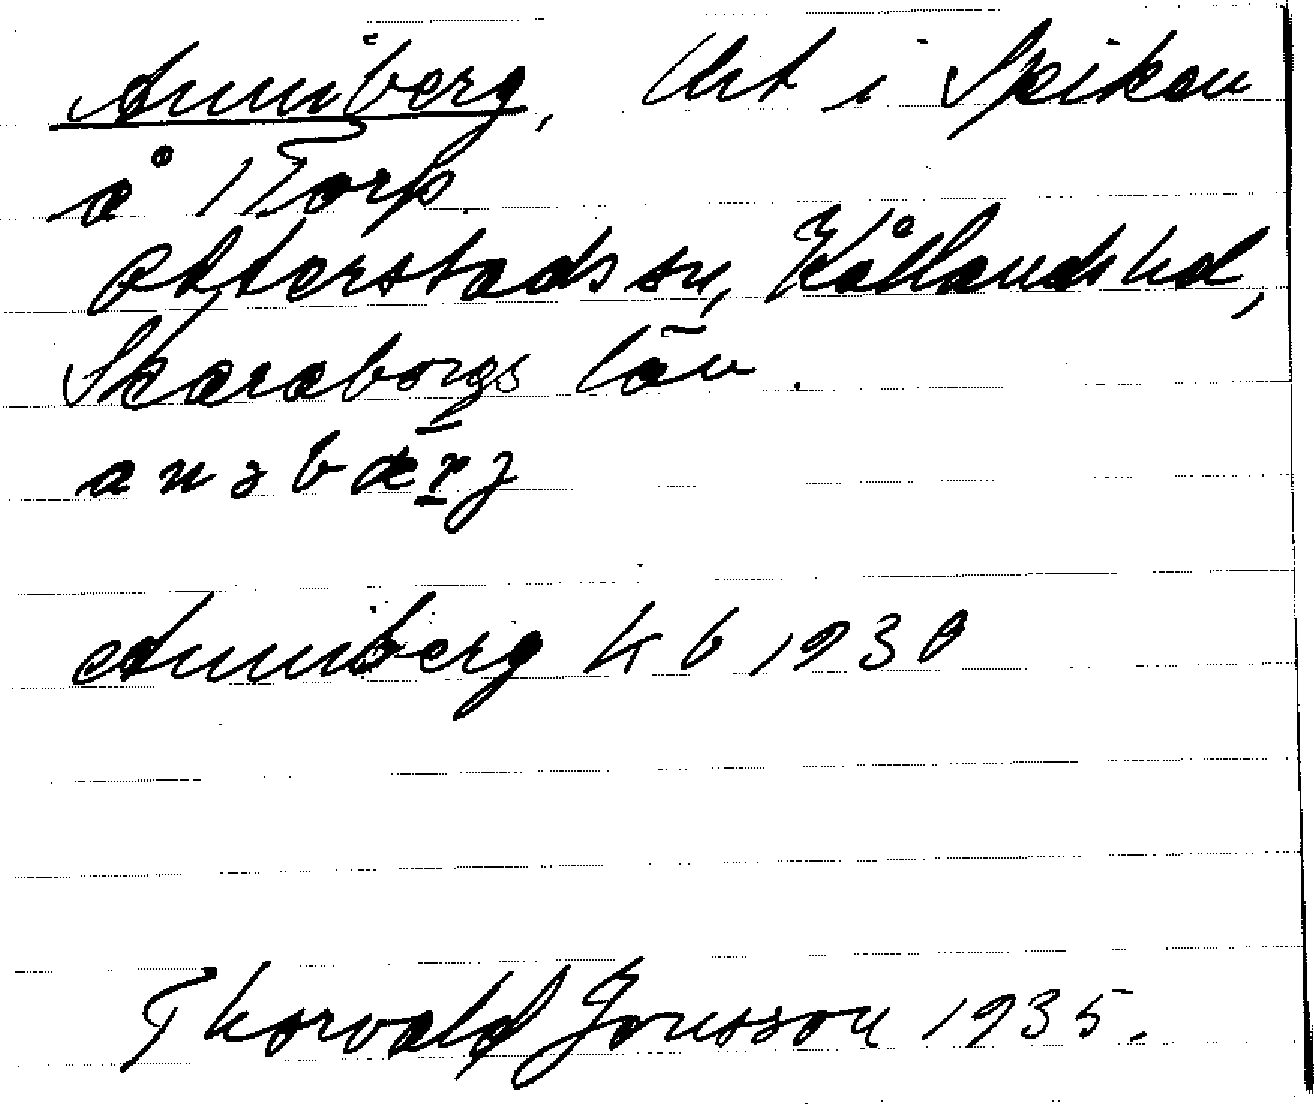 Anniberg, lht i Spiken
å 1 Torp
Otterstads sn, Kållands hd,
Skaraborgs län.
anɜbærj
Anniberg kb 1930
Thorvald Jonsson 1935.